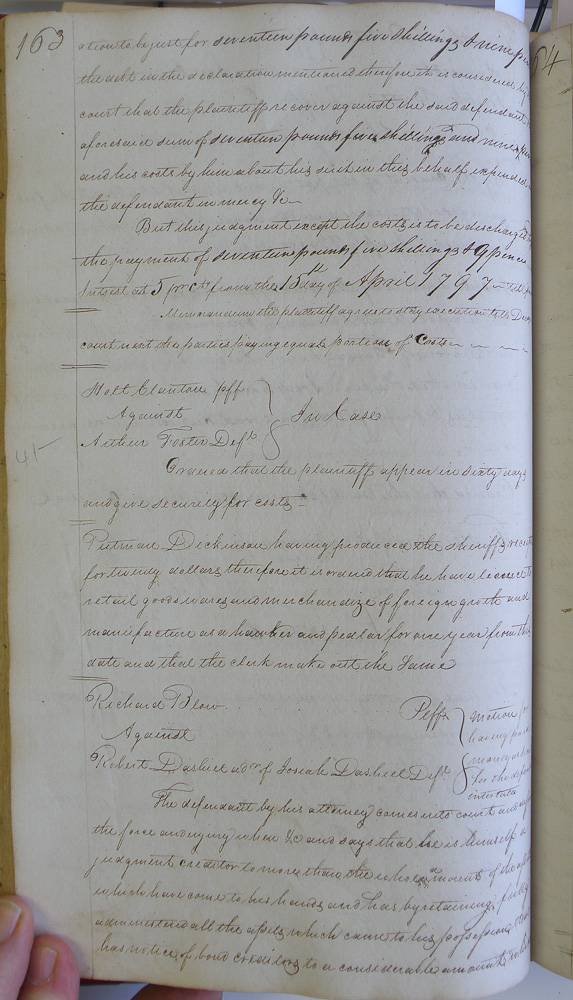 163
ation to be just for seventeen pounds five shillings & nine pen
the debt in the declaration mentioned therefore it is considered by
court that the plaintiff recover against the said defendant
aforesaid sum of seventeen pounds five shillings and nine pen
and his costs by him about his suit in this behalf expended
the defendant in mercy &c
But this judgment except the costs is to be discharged
the payment of seventeen pounds five shillings & 9 pence
Interest at 5 pr ct from the 15th day of April 1797
Memorandum the plaintiff agrees to stay execution till Dec
court next the parties paying equal portions of Costs
Holt Clanton plff
Against
Arthur Foster Deft
In Case
41-
Ordered that the plaintiff appear in sixty days
and give security for costs
Putman Dickinson having produced the sheriffs receit
for twenty dollars therefore it is ordered that he have
retail goods wares and merchandize of foreign groth and
manufacture as a hawker and pedlar for one year from this
date and that the clerk make out the same
Richard Blow Plff
Against
Robert Dashiel adr of Josiah Dashiel Deft
Motion for
having paid
money as
for the def
intestate
The defendant by his attorney comes into court and
the force and injury when &c and says that he is himself a
judgment creditor to more than the whole amount of the
which have come to his hands and has by retaining fully
administered all the assets which came to his possession
has notice of bond creditors to a considerable amount
64